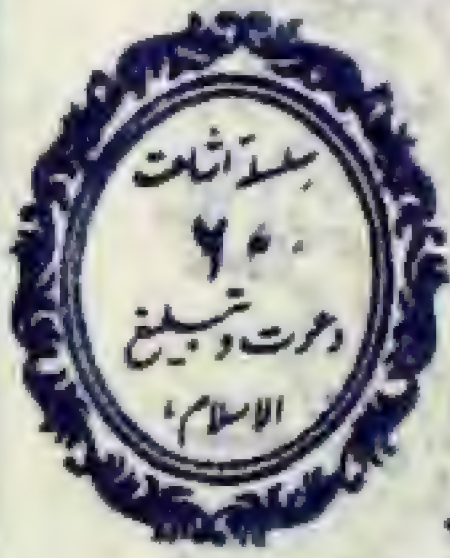 سلسلۂ اشاعت
۶۰
دعوت و تبلیغ
الاسلام،